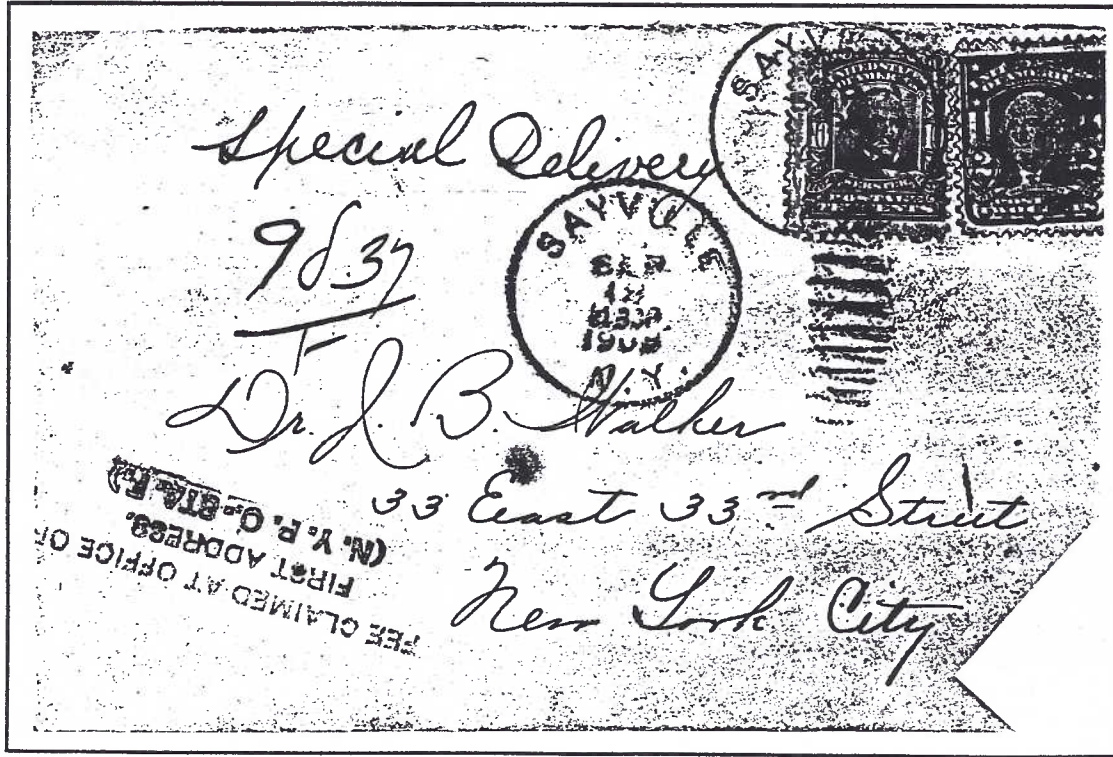 Special Delivery
SAYVILLE
SEP
1908
N.Y.
Dr. J. B. Walker
33 East 33rd Street
New York City
FEE CLAIMED AT OFFICE OF
FIRST ADDRESS.
(N. Y. P. O., STA. F.)